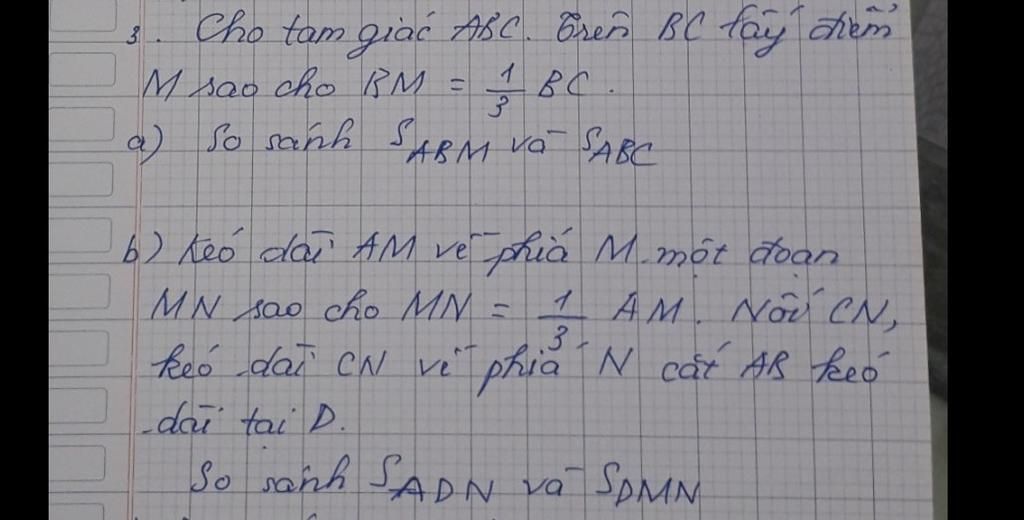 3. Cho tam giác ABC. Trên BC lấy điểm
M sao cho BM = 1/3 BC.
a) So sánh S_ABM và S_ABC
b) Kéo dài AM về phía M một đoạn
MN sao cho MN = 1/3 AM. Nối CN,
kéo dài CN về phía N cắt AB kéo
dài tại D.
So sánh S_ADN và S_DMN